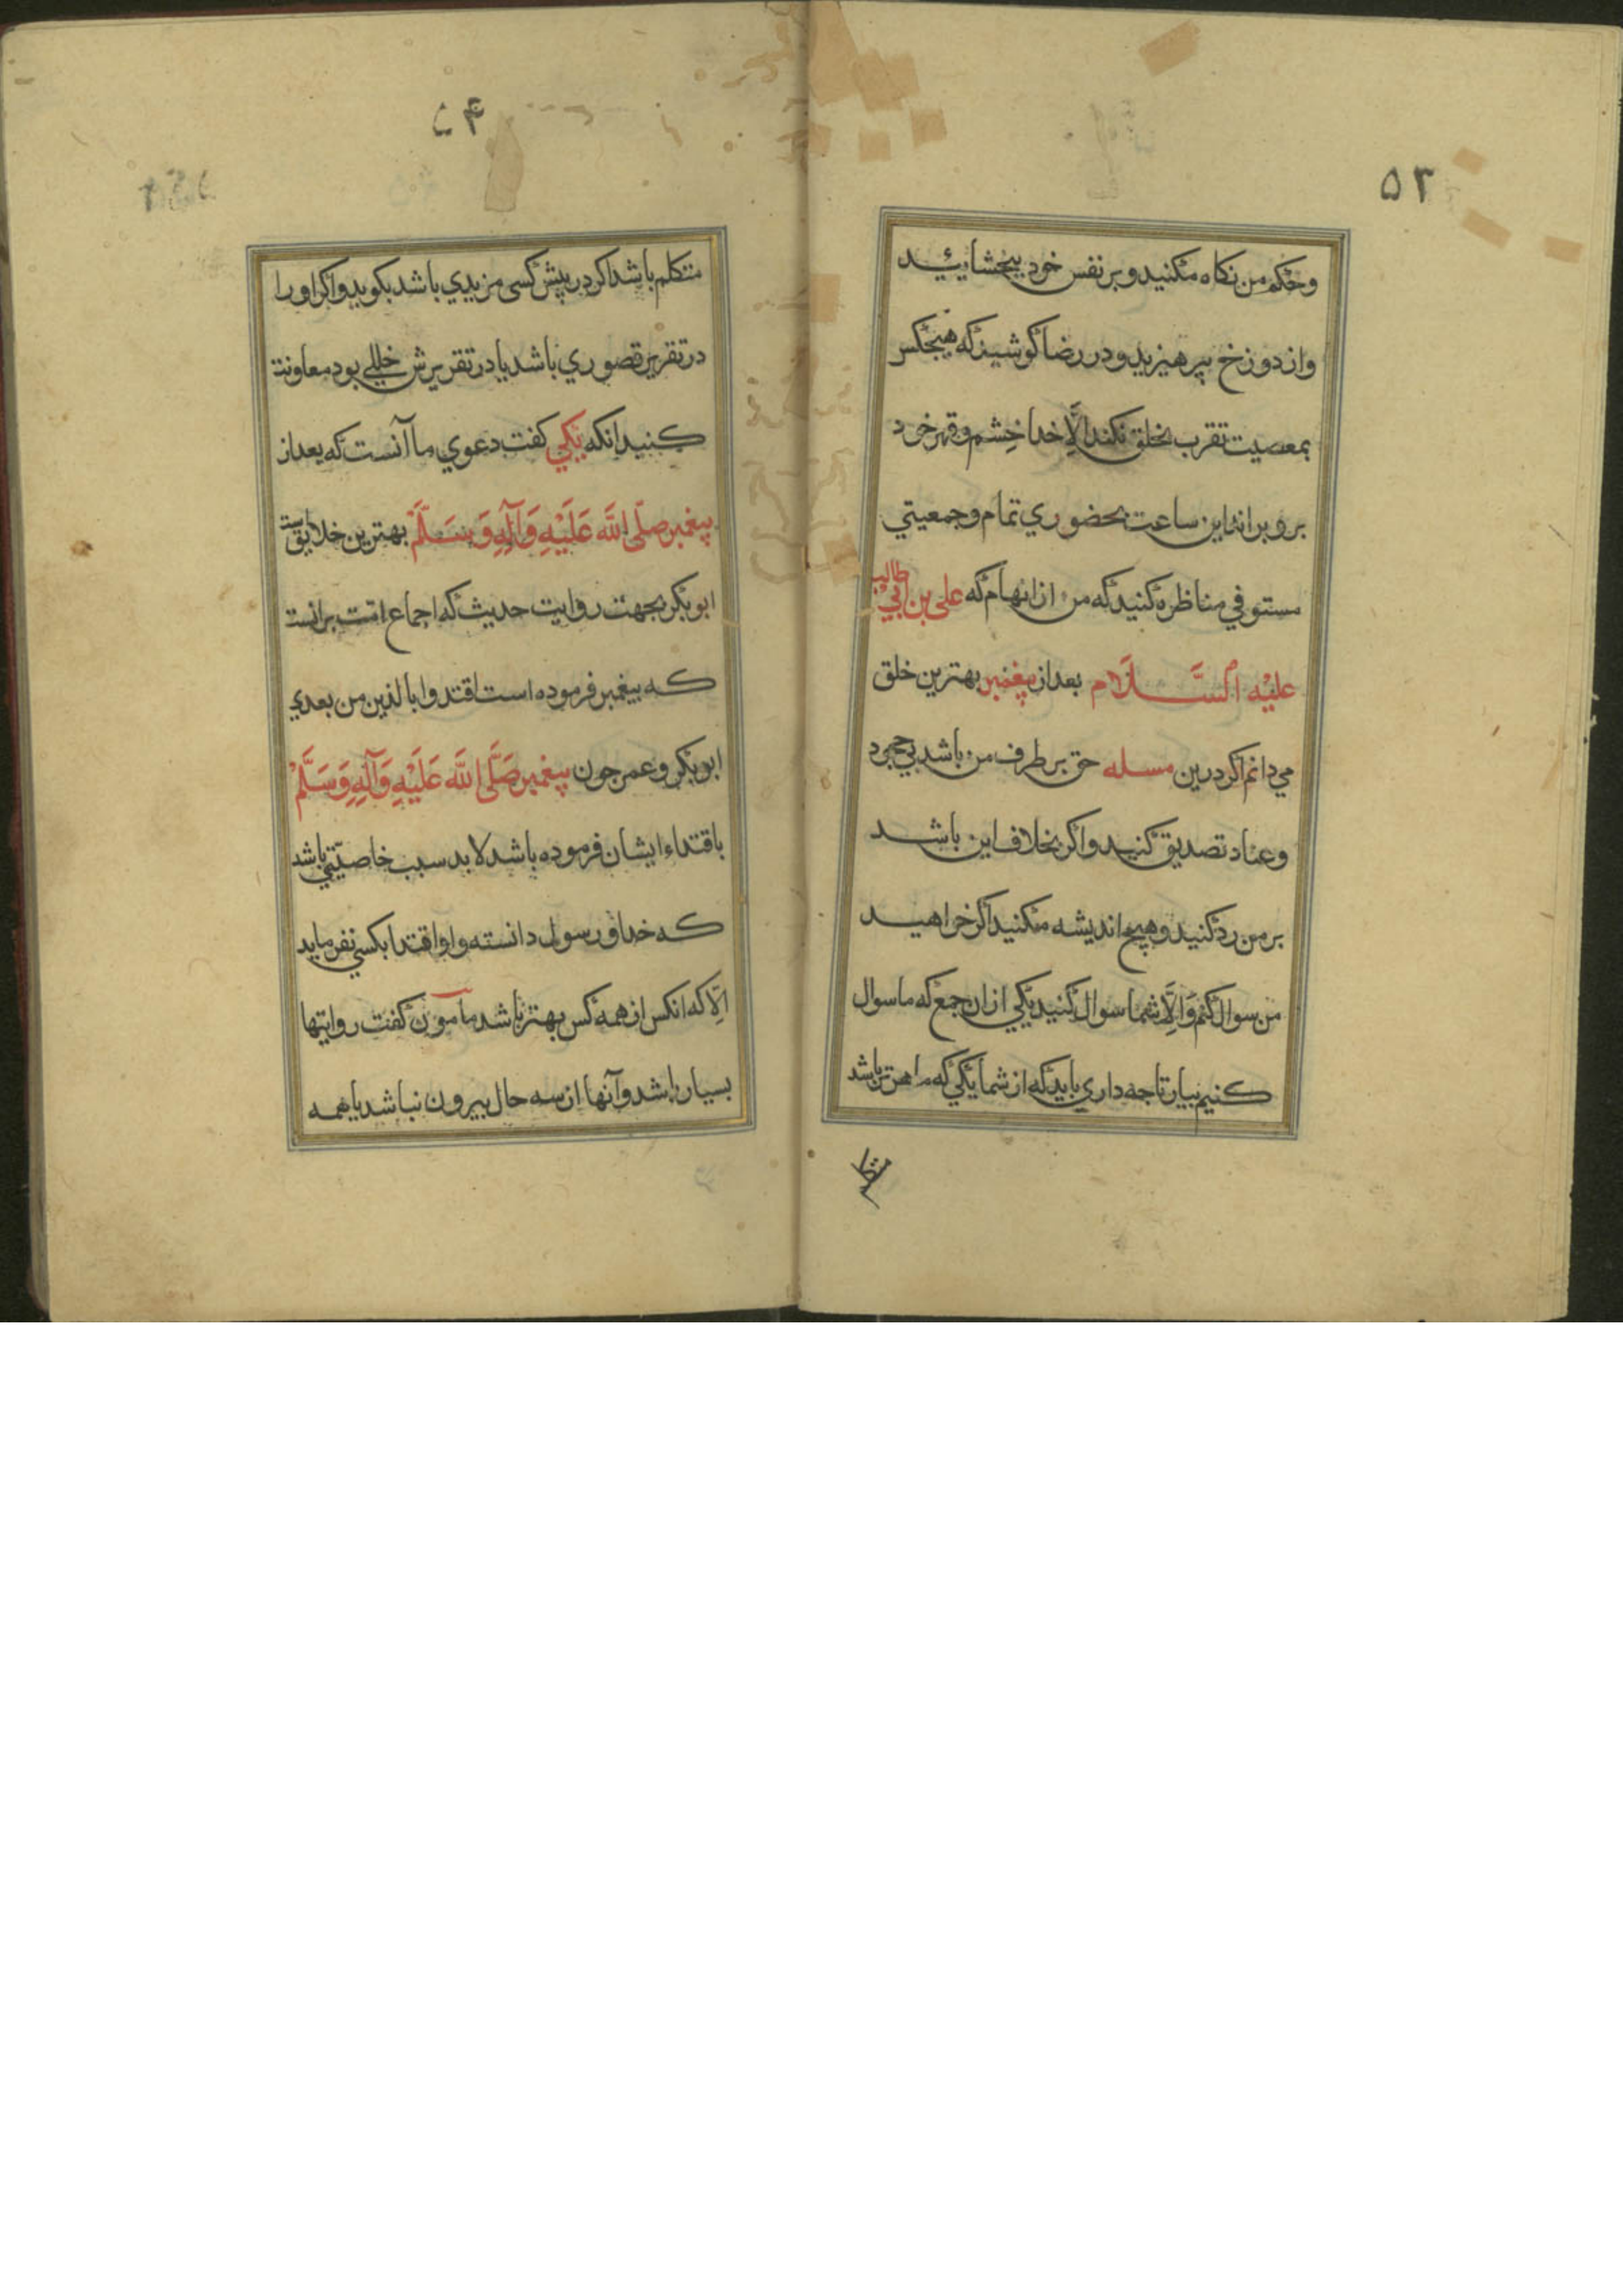 ۵۳
وحکم من نکاه مکنید و بر نفس خود ببخشائید
واز دوزخ بپرهیزید و در رضا کوشید که هیچکس
بمعصیت تقرب بخلق نکند الّا خدا خشم و قهر خود
برو براند این ساعت بحضوري تمام وجمعیتي
مستوفي مناظره کنید که من ازانهاام که علی بن ابي طالب
علیه السَّلَام بعد از پیغمبر بهترین خلق
مي دانم اکر درین مسله حق بر طرف من باشد بي جحود
وعناد تصدیق کنید واکر بخلاف این باشد
بر من رد کنید وهیچ اندیشه مکنید اکر خواهید
من سوال کنم وَالِّا شما سوال کنید یکي ازان جمع که ما سوال
کنیم بیار تا چه داري باید که از شما یکي که ماهرتر باشد
۵۴
متکلم باشد اکر در پیش کسی مزیدي باشد بکوید واکر او را
در تقریر قصوري باشد یا در تقریرش خللي بود معاونت
کنید انکه یکي کفت دعوي ما آنست که بعد از
پیغمبر صلّی اللّه عَلَیْهِ وَآلِهِ وَسَلَّمْ بهترین خلایق است
ابو بکر بجهت روایت حدیث که اجماع امّت برانست
که پیغمبر فرموده است اقتدوا بالذین من بعدي
ابو بکر وعمر چون پیغمبر صَلَّی اللَّه عَلَیْهِ وَآلِهِ وَسَلَّمْ
باقتداء ایشان فرموده باشد لابد سبب خاصیّتي باشد
که خدا و رسول دانسته و او اقتدا بکسي نفرماید
الِّا که انکس از همه کس بهتر باشد مآمون کفت روایتها
بسیار باشد وآنها از سه حال بیرون نباشد یا همه